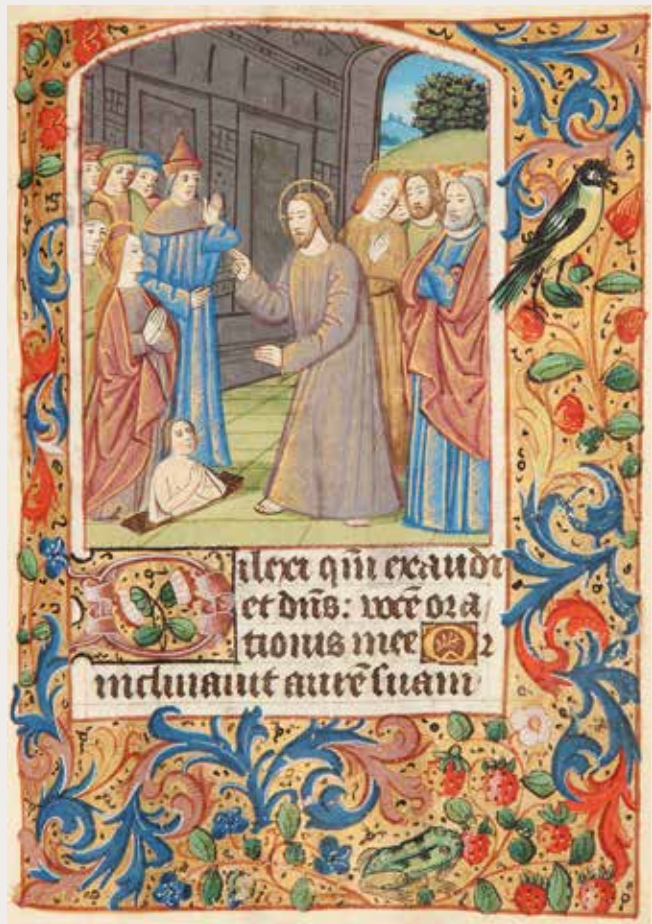 Dilexi qm̄ exaudi
et dn̄s: uocē ora
tionis mee Q̄
inclinauit aurē suam